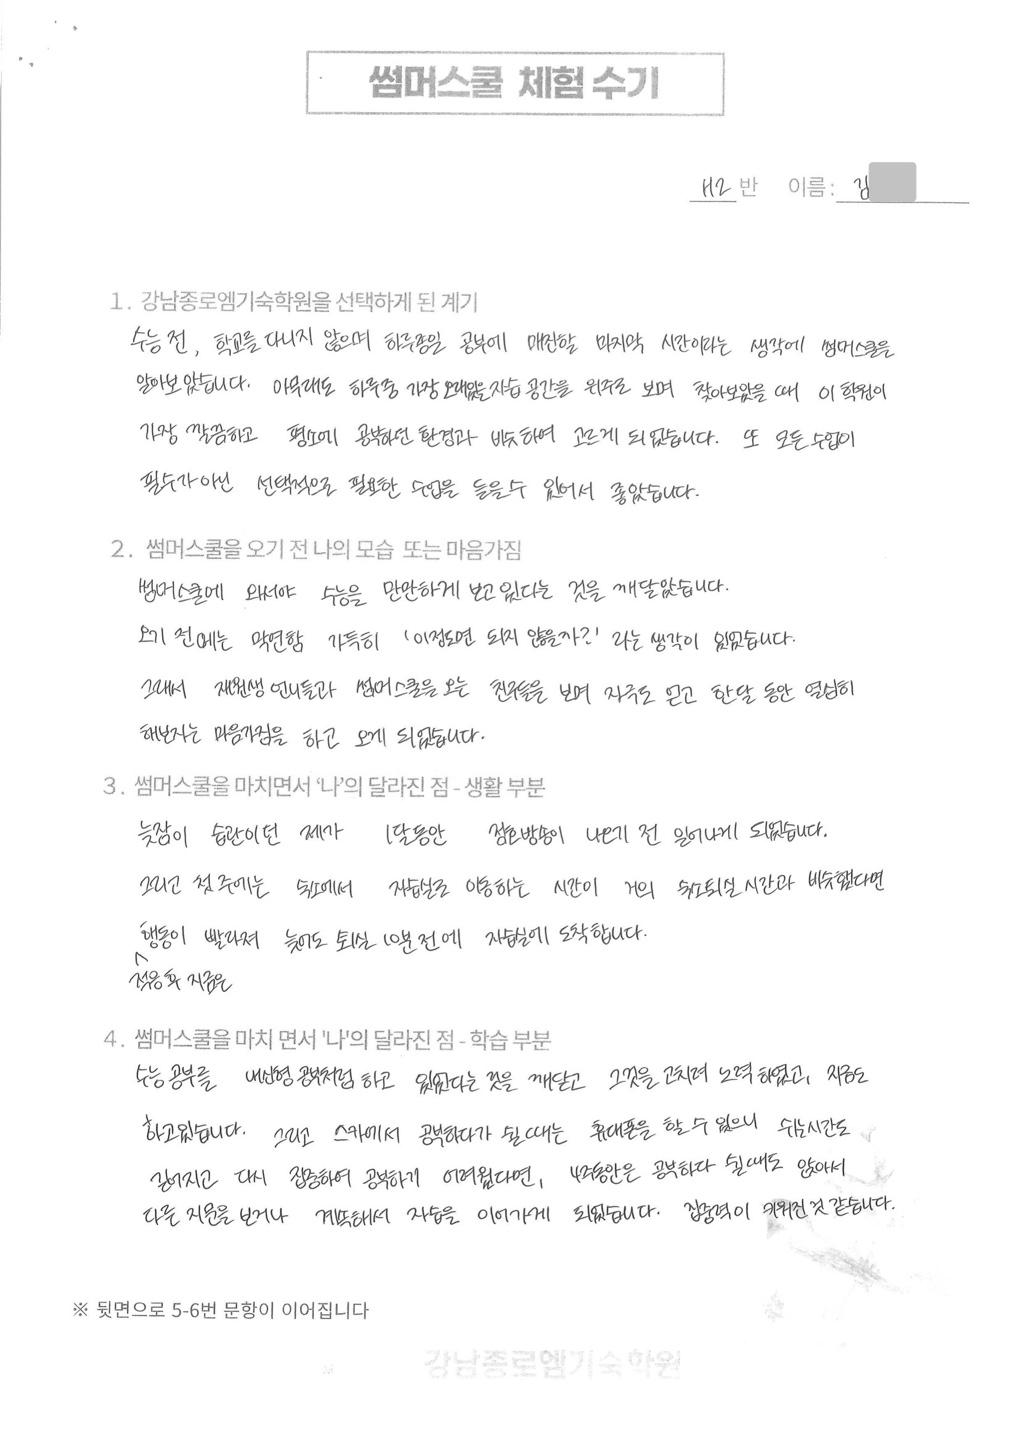 썸머스쿨 체험 수기
H2 반 이름: 김
1. 강남종로엠기숙학원을 선택하게 된 계기
수능 전, 학교를 다니지 않으며 하루종일 공부에 매진할 마지막 시간이라는 생각에 썸머스쿨을
알아보았습니다. 아무래도 하루중 가장 오래있을 자습 공간을 위주로 보며 찾아보았을 때 이 학원이
가장 깔끔하고 평소에 공부하던 환경과 비슷하여 고르게 되었습니다. 또 모든 수업이
필수가 아닌 선택적으로 필요한 수업을 들을수 있어서 좋았습니다.
2. 썸머스쿨을 오기 전 나의 모습 또는 마음가짐
썸머스쿨에 와서야 수능을 만만하게 보고 있다는 것을 깨달았습니다.
오기 전에는 막연함 가득히 '이정도면 되지 않을까?' 라는 생각이 있었습니다.
그래서 재원생 언니들과 썸머스쿨을 오는 친구들을 보며 자극도 받고 한달 동안 열심히
해보자는 마음가짐을 하고 오게 되었습니다.
3. 썸머스쿨을 마치면서 '나'의 달라진 점 - 생활 부분
늦잠이 습관이던 제가 1달동안 점호방송이 나오기 전 일어나게 되었습니다.
그리고 첫 주에는 숙소에서 자습실로 이동하는 시간이 거의 숙소퇴실 시간과 비슷했다면
행동이 빨라져 늦어도 퇴실 10분 전에 자습실에 도착합니다.
적응 후 지금은
4. 썸머스쿨을 마치 면서 '나'의 달라진 점 - 학습 부분
수능 공부를 내신형 공부처럼 하고 있었다는 것을 깨닫고 그것을 고치려 노력하였고, 지금도
하고있습니다. 그리고 스카에서 공부하다가 쉴 때는 휴대폰을 할 수 있으니 쉬는시간도
길어지고 다시 집중하여 공부하기 어려웠다면, 4주동안은 공부하다 쉴때도 앉아서
다른 지문을 보거나 계속해서 자습을 이어가게 되었습니다. 집중력이 키워진 것 같습니다.
※ 뒷면으로 5-6번 문항이 이어집니다
강남종로엠기숙학원